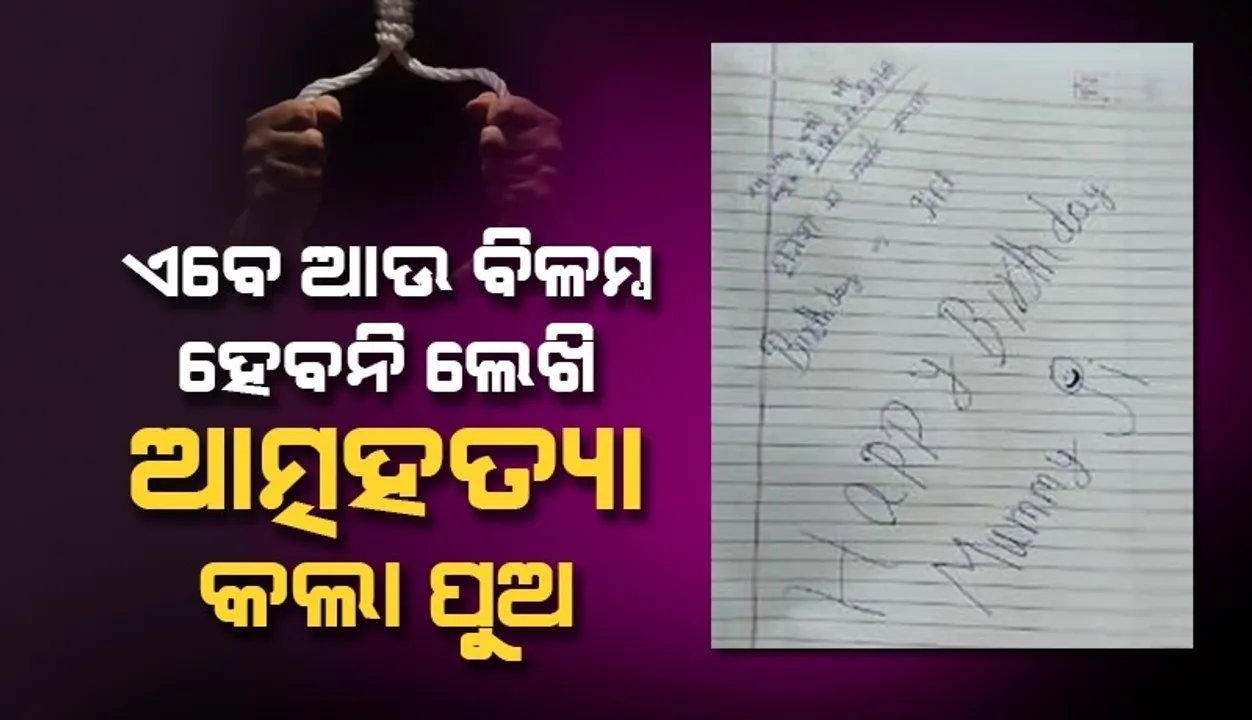 ଏବେ ଆଉ ବିଳମ୍ବ
ହେବନି ଲେଖି
ଆତ୍ମହତ୍ୟା
କଲା ପୁଅ
Birthday
Happy Birthday
Mummy ji